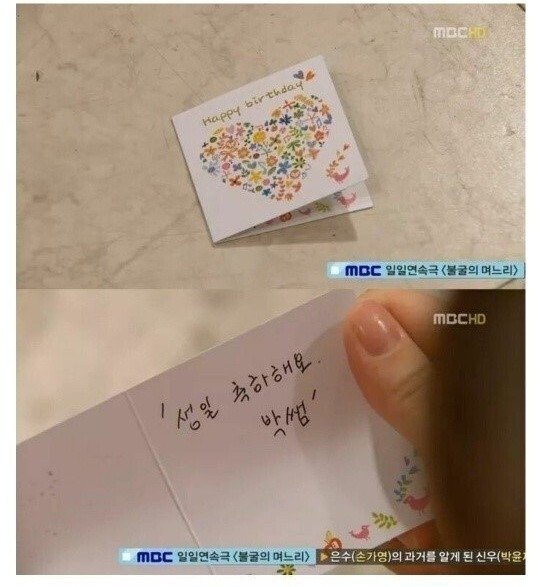 MBC HD
Happy birthday
MBC 일일연속극 <불굴의 며느리>
MBC HD
'생일 축하해요.
박쌤'
MBC 일일연속극 <불굴의 며느리> ▶은수(손가영)의 과거를 알게 된 신우(박윤